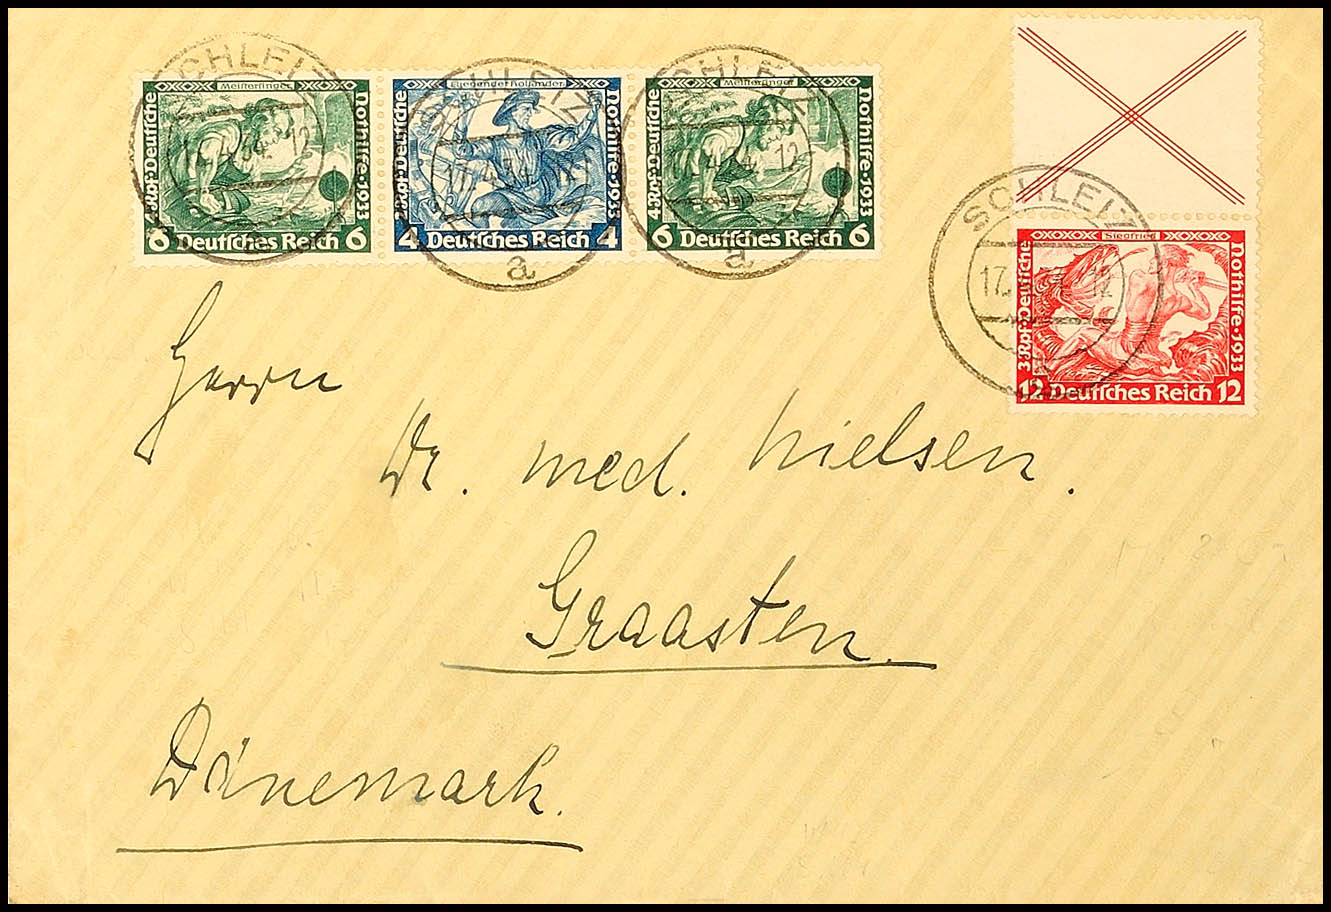 SCHLEIZ
a
Meistersinger
4 Rpf·Deutsche
Nothilfe·1933
6 Deutsches Reich 6
SCHLEIZ
17.4.34. 12
a
Fliegender Holländer
2 Rpf·Deutsche
Nothilfe·1933
4 Deutsches Reich 4
SCHLEIZ
a
Meistersinger
4 Rpf·Deutsche
Nothilfe·1933
6 Deutsches Reich 6
SCHLEIZ
Siegfried
3 Rpf·Deutsche
Nothilfe·1933
12 Deutsches Reich 12
Herrn
Dr. med. Nielsen.
Graasten.
Dänemark.